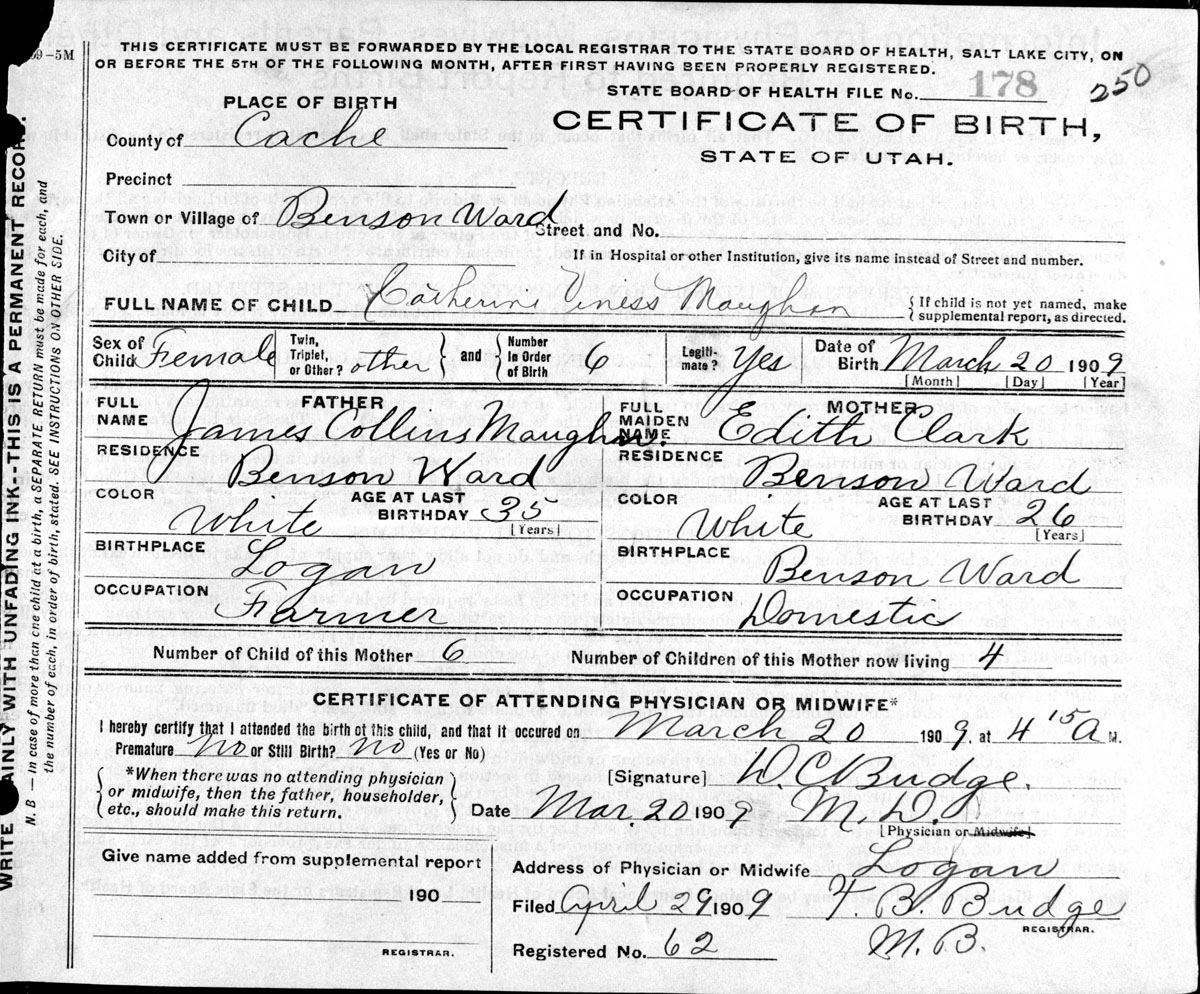 09-5M
THIS CERTIFICATE MUST BE FORWARDED BY THE LOCAL REGISTRAR TO THE STATE BOARD OF HEALTH, SALT LAKE CITY, ON
OR BEFORE THE 5TH OF THE FOLLOWING MONTH, AFTER FIRST HAVING BEEN PROPERLY REGISTERED.
STATE BOARD OF HEALTH FILE No. 178 250
PLACE OF BIRTH
CERTIFICATE OF BIRTH,
STATE OF UTAH.
County of Cache
Precinct
Town or Village of Benson Ward Street and No.
City of If in Hospital or other Institution, give its name instead of Street and number.
FULL NAME OF CHILD Catherine Viness Maughan { If child is not yet named, make
supplemental report, as directed.
Sex of Child Female Twin, Triplet, or Other? other } and { Number In Order of Birth 6 Legiti-mate? Yes Date of Birth March 20 1909
[Month] [Day] [Year]
FULL NAME FATHER James Collins Maughan.
FULL MAIDEN NAME MOTHER Edith Clark
RESIDENCE Benson Ward
RESIDENCE Benson Ward
COLOR White AGE AT LAST BIRTHDAY 35 [Years]
COLOR White AGE AT LAST BIRTHDAY 26 [Years]
BIRTHPLACE Logan
BIRTHPLACE Benson Ward
OCCUPATION Farmer
OCCUPATION Domestic
Number of Child of this Mother 6 Number of Children of this Mother now living 4
CERTIFICATE OF ATTENDING PHYSICIAN OR MIDWIFE*
I hereby certify that I attended the birth of this child, and that it occured on March 20 1909, at 4 15 A M.
Premature no or Still Birth? no (Yes or No)
{ *When there was no attending physician
or midwife, then the father, householder,
etc., should make this return. }
[Signature] D. C. Budge.
Date Mar. 20 1909 M. D.
[Physician or Midwife]
Give name added from supplemental report
190
REGISTRAR.
Address of Physician or Midwife Logan
Filed April 29 1909 F. B. Budge
REGISTRAR.
Registered No. 62 M. B.
WRITE AINLY WITH UNFADING INK.-THIS IS A PERMANENT RECORD.
N. B.—In case of more than one child at a birth, a SEPARATE RETURN must be made for each, and
the number of each, in order of birth, stated. SEE INSTRUCTIONS ON OTHER SIDE.